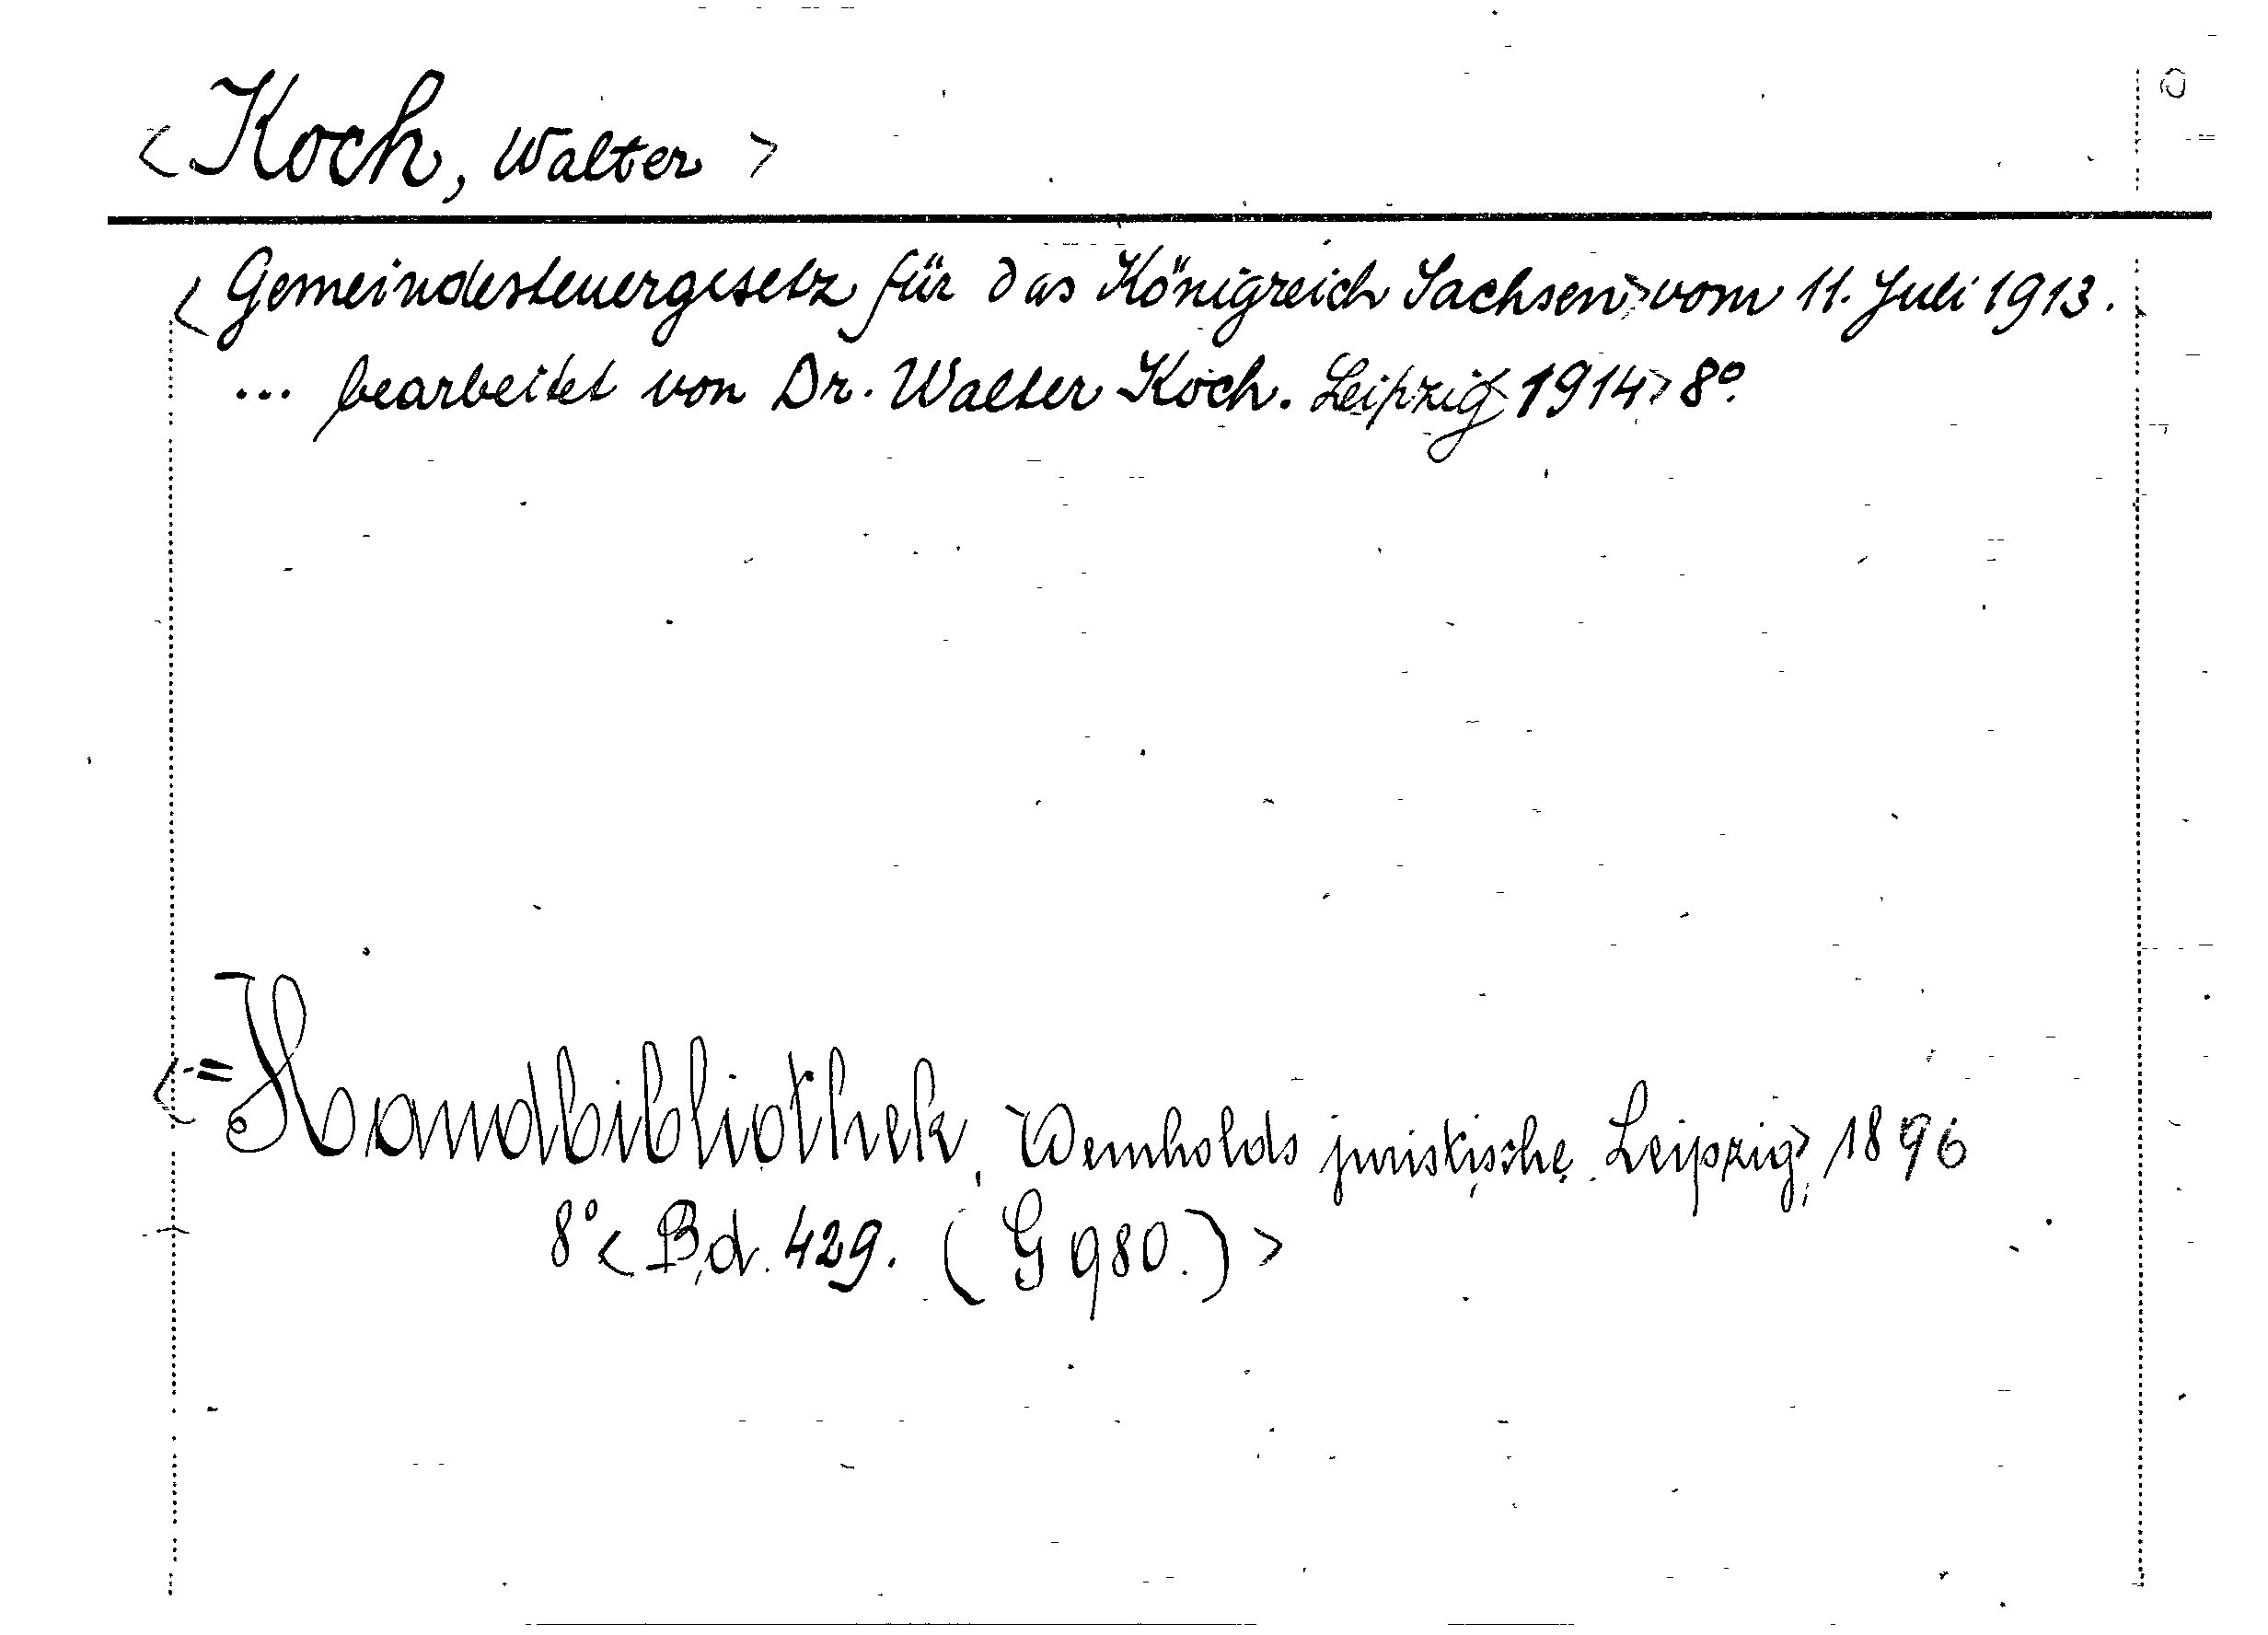 < Koch, Walter >
< Gemeindesteuergesetz für das Königreich Sachsen > vom 11. Juli 1913.
... bearbeitet von Dr. Walter Koch. Leipzig < 1914 > 8°.
< = Handbibliothek, Weinholds juristische. Leipzig >, 1896
8° < Bd. 429. (G 980.) >